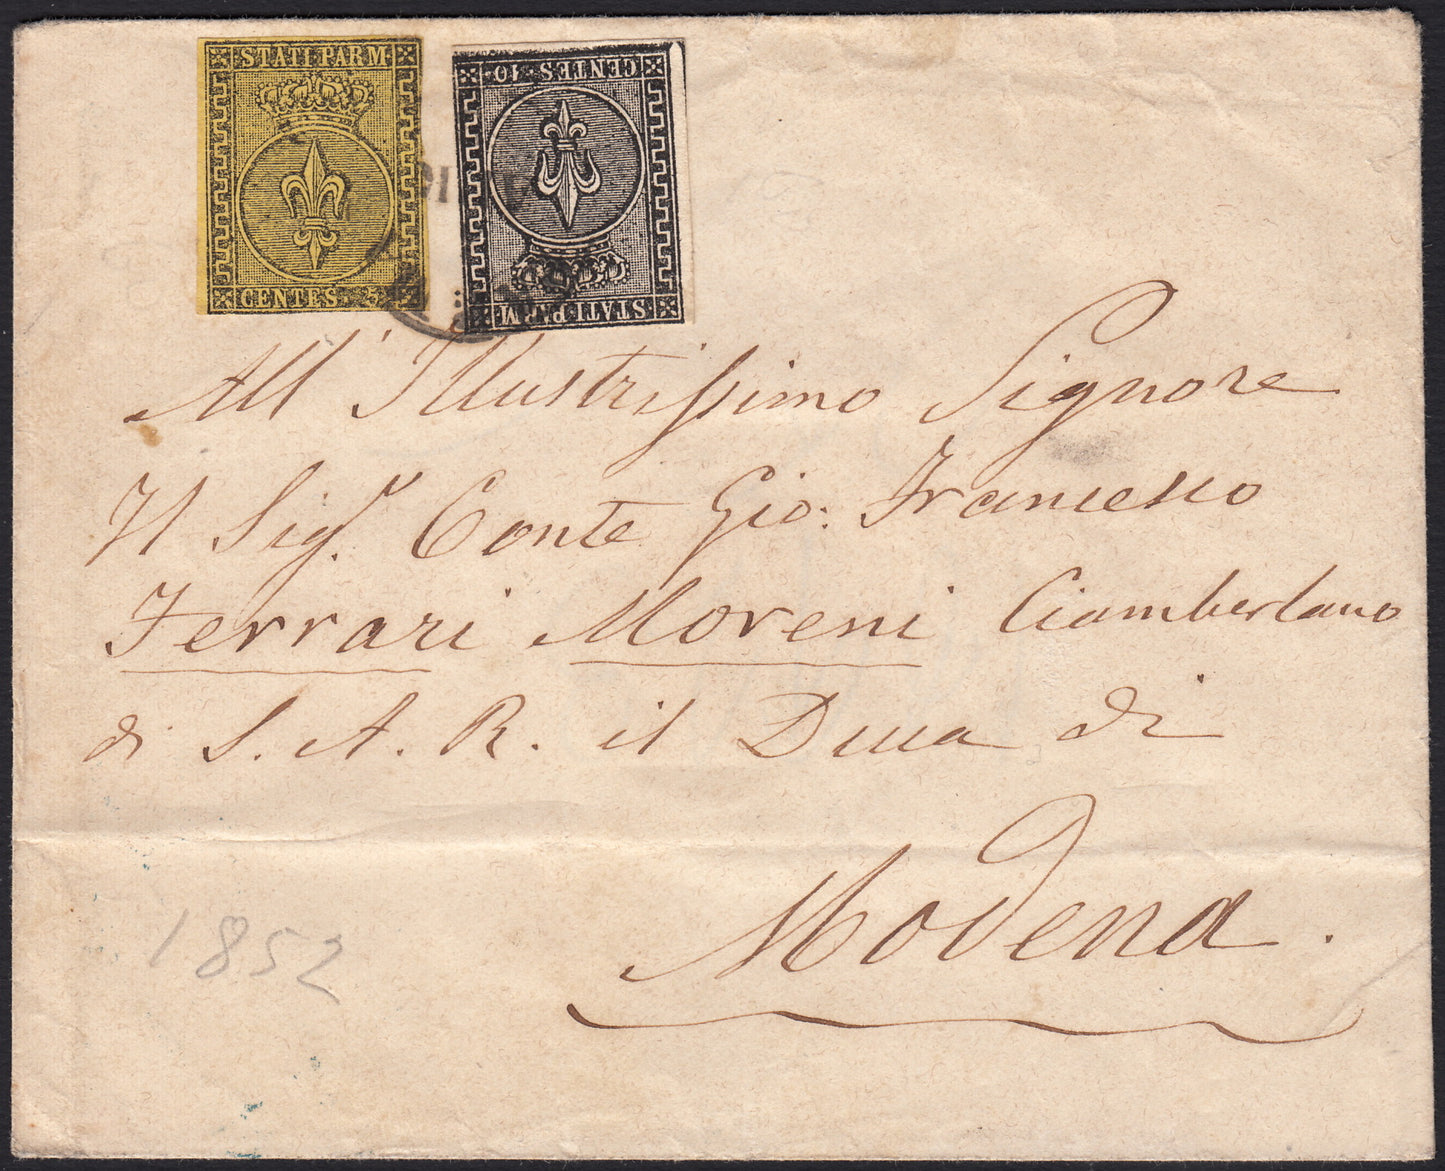 STATI PARM
CENTES. 5
CENTES. 10
STATI PARM
All' Illustrissimo Signore
Il Sig.r Conte Gio: Francesco
Ferrari Moreni Ciamberlano
di S. A. R. il Duca di
Modena.
1852